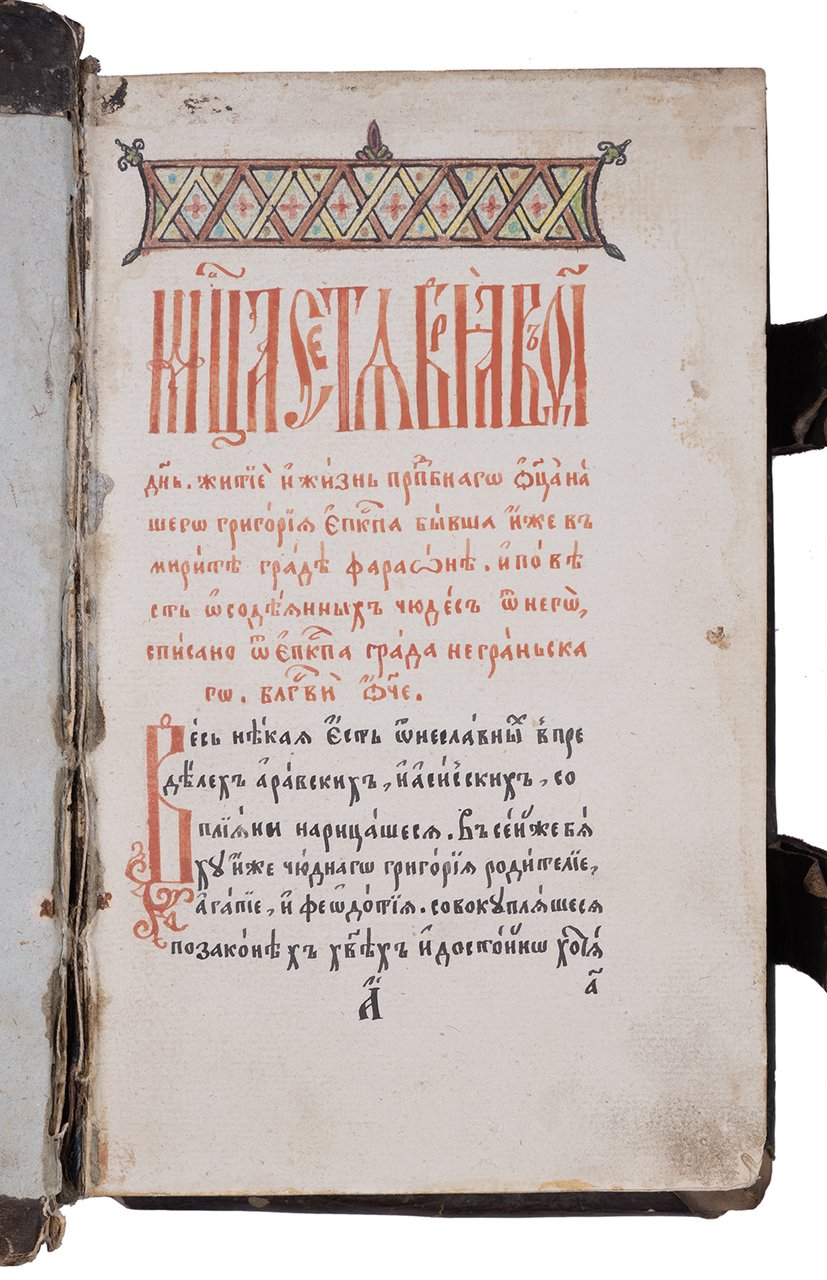 мц҃а сетѧврїа въ ѳ҃і
дн҃ь. житїѐ и҆ жи́знь прп҇дбнагѡ ѻ҆ц҃а на
шегѡ григо́рїѧ є҆пкⷭ҇па бы́вша и҆́же въ
мири́те гра́дѣ фарасѡ́нѣ. и҆ по́вѣ
сть ѡ҆ содѣ́ѧнныхъ чюде́съ ѿ негѡ̀,
спи́сано ѿ є҆пкⷭ҇па гра́да негра́ньска
гѡ. блгⷭ҇ви ѻ҆́ч҃е.
Ве́сь нѣ́каѧ є҆́сть ѿ несла́вныⷯ в̾ пре
дѣ́лехъ а҆ра́вскихъ, и҆ а҆сі́йскихъ, со
плїѧ́ни нарица́шесѧ. Въ се́й же бѧ́
ху и҆̀же чю́днагѡ григо́рїѧ роди́телїе,
а҆га́пїе, и҆ феѡдо́тїѧ. совокуплѧ́шесѧ
по зако́нѣхъ хв҃ѣхъ и҆ досто́йнѡ хо́тѧ
а҃і
а҃